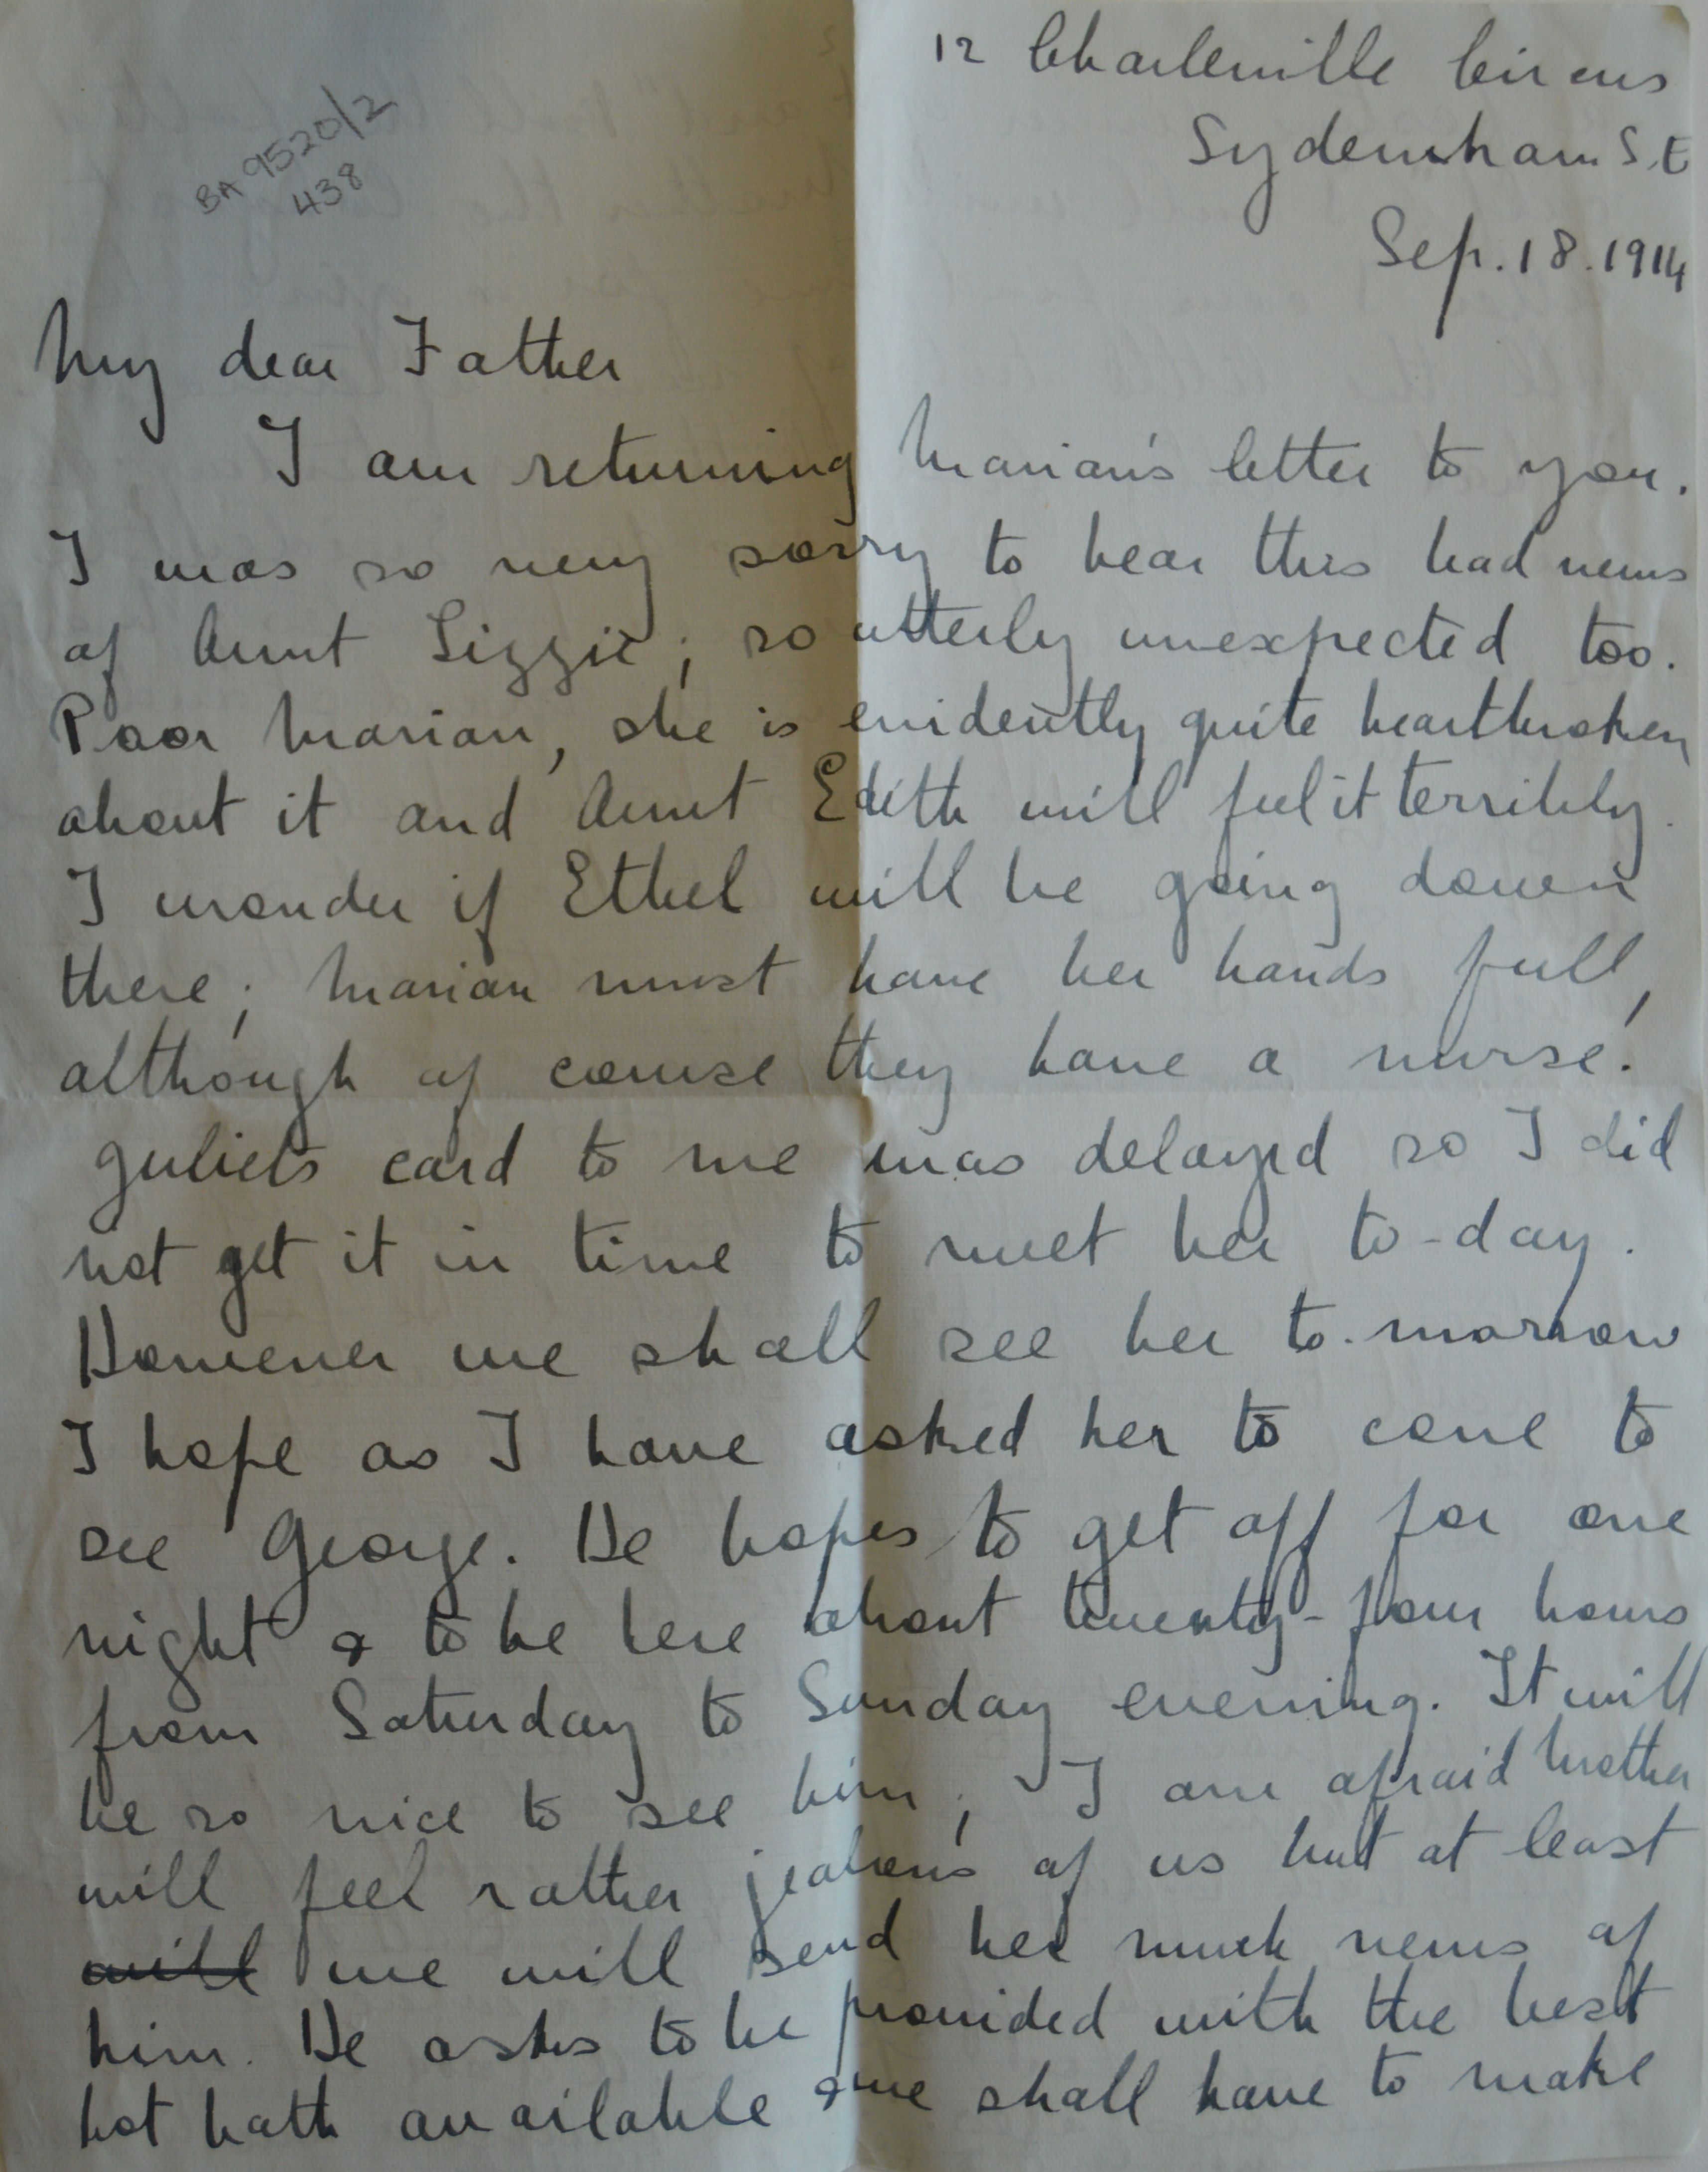 BA 9520/2
438
12 Charleville Circus
Sydenham S.E
Sep. 18. 1914
My dear Father
I am returning Marian's letter to you.
I was so very sorry to hear this bad news
of Aunt Lizzie; so utterly unexpected too.
Poor Marian, she is evidently quite heartbroken
about it and Aunt Edith will feel it terribly.
I wonder if Ethel will be going down
there; Marian must have her hands full,
although of course they have a nurse.
Juliets card to me was delayed so I did
not get it in time to meet her to-day.
However we shall see her to-morrow
I hope as I have asked her to come to
see George. He hopes to get off for one
night & to be here about twenty-four hours
from Saturday to Sunday evening. It will
be so nice to see him; I am afraid Mother
will feel rather jealous of us but at least
will we will send her much news of
him. He asks to be provided with the best
hot bath available & we shall have to make